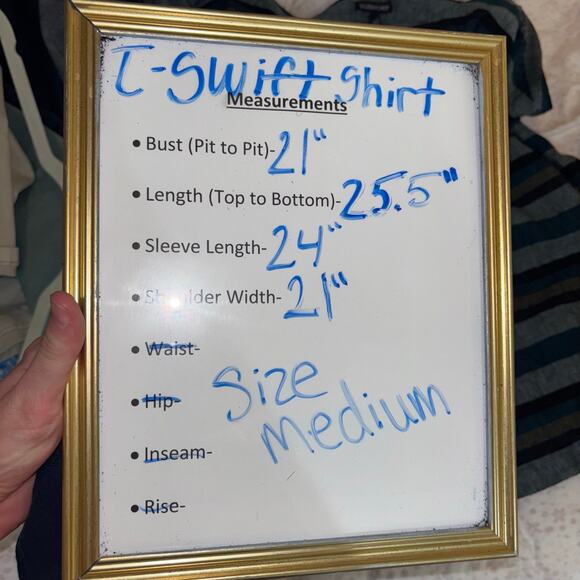 T-Swift Shirt
Measurements
• Bust (Pit to Pit)- 21"
• Length (Top to Bottom)- 25.5"
• Sleeve Length- 24"
• Shoulder Width- 21"
• Waist-
• Hip-
Size
Medium
• Inseam-
• Rise-